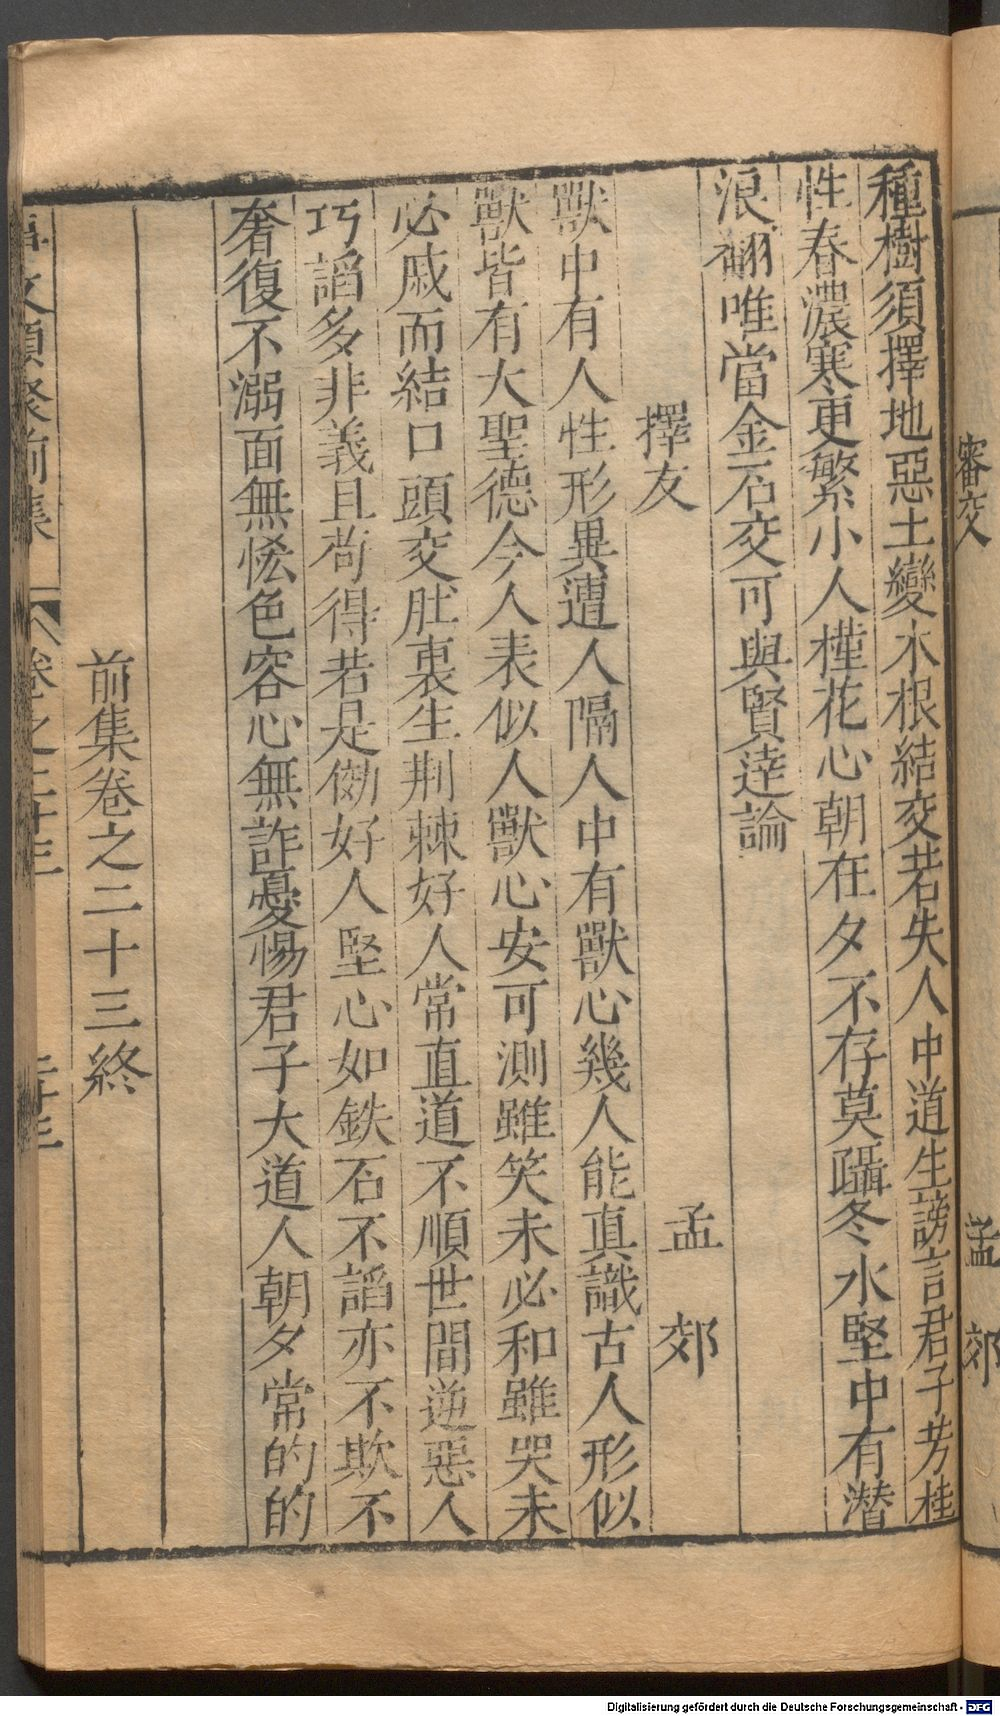 審交
孟郊
種樹須擇地惡土變木根結交若失人中道生謗言君子芳桂
性春濃寒更繁小人槿花心朝在夕不存莫躡冬水堅中有潛
浪翻唯當金石交可與賢逹論
擇友
孟郊
獸中有人性形異遭人隔人中有獸心幾人能真識古人形似
獸皆有大聖德今人表似人獸心安可測雖笑未必和雖哭未
必戚而結口頭交肚裏生荆棘好人常直道不順世間逆惡人
巧謟多非義且尚得若是効好人堅心如鉄石不謟亦不欺不
奢復不溺面無恡色容心無詐憂惕君子大道人朝夕常的的
前集卷之二十三終
事文類聚前集
卷之二十三
二十三
Digitalisierung gefördert durch die Deutsche Forschungsgemeinschaft - DFG